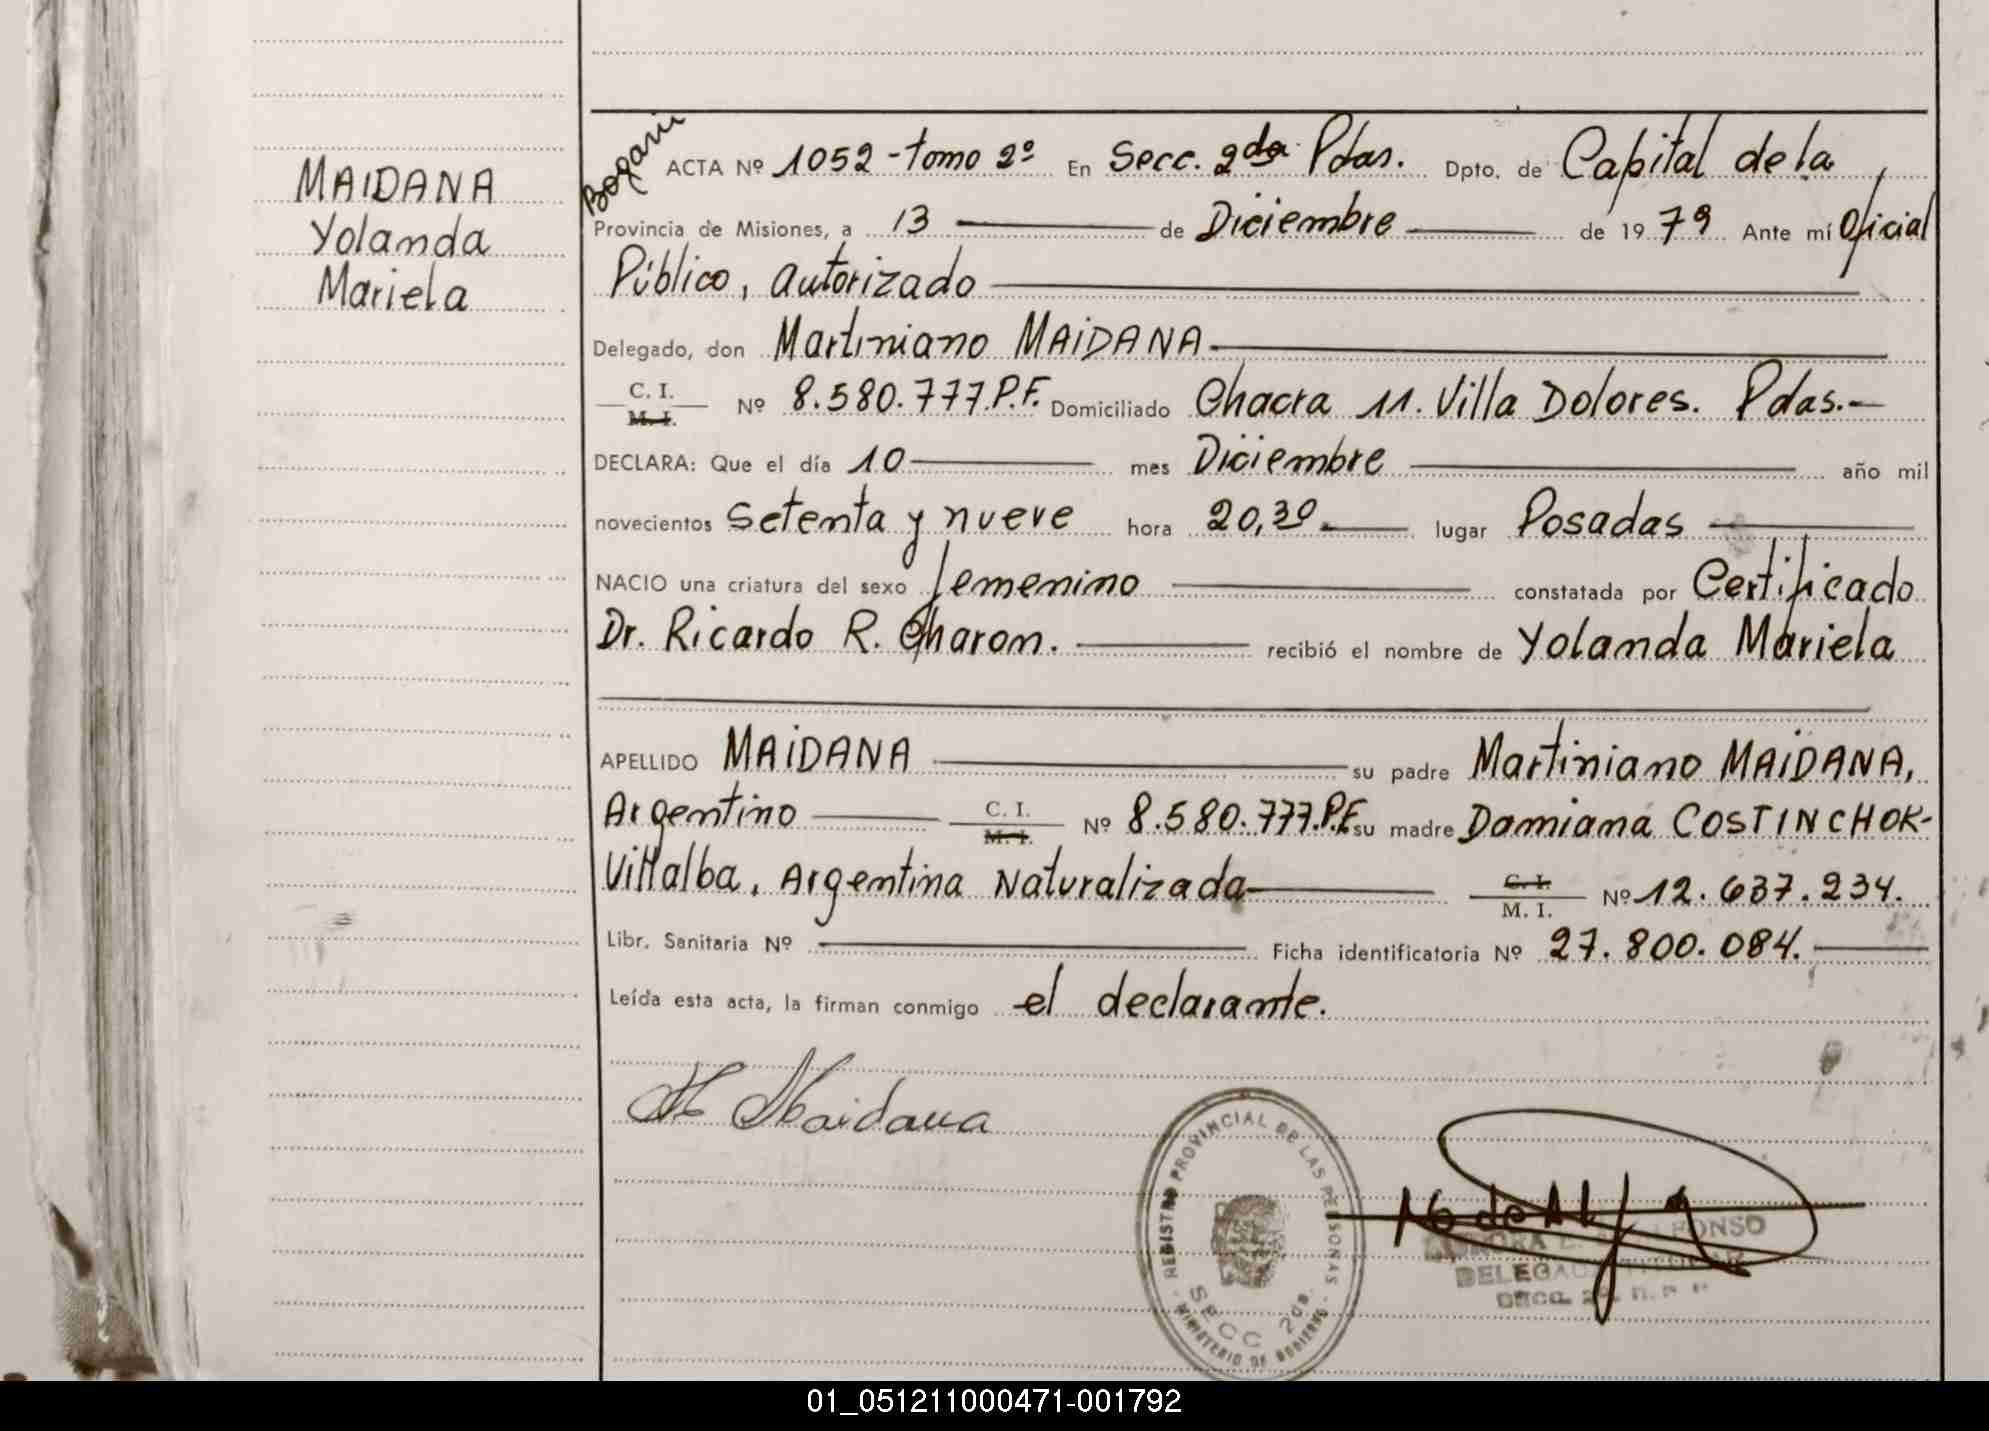 MAIDANA
Yolanda
Mariela
Bogarin
ACTA Nº 1052 - tomo 2º En Secc. 2da Pdas. Dpto. de Capital de la
Provincia de Misiones, a 13 de Diciembre de 1979 Ante mí Oficial
Público, autorizado
Delegado, don Martiniano MAIDANA
C. I.
M. I. Nº 8.580.777.P.F. Domiciliado Chacra 11. Villa Dolores. Pdas.-
DECLARA: Que el día 10 mes Diciembre año mil
novecientos setenta y nueve hora 20,30 lugar Posadas
NACIO una criatura del sexo femenino constatada por Certificado
Dr. Ricardo R. Charon. recibió el nombre de Yolanda Mariela
APELLIDO MAIDANA su padre Martiniano MAIDANA,
Argentino C. I. M. I. Nº 8.580.777.P.F su madre Damiana COSTINCHOK-
Villalba, Argentina Naturalizada C. I. M. I. Nº 12.637.234.
Libr. Sanitaria Nº Ficha identificatoria Nº 27.800.084.
Leída esta acta, la firman conmigo el declarante.
M Maidana
REGISTRO PROVINCIAL DE LAS PERSONAS
SECC 2da.
MINISTERIO DE GOBIERNO
01_051211000471-001792